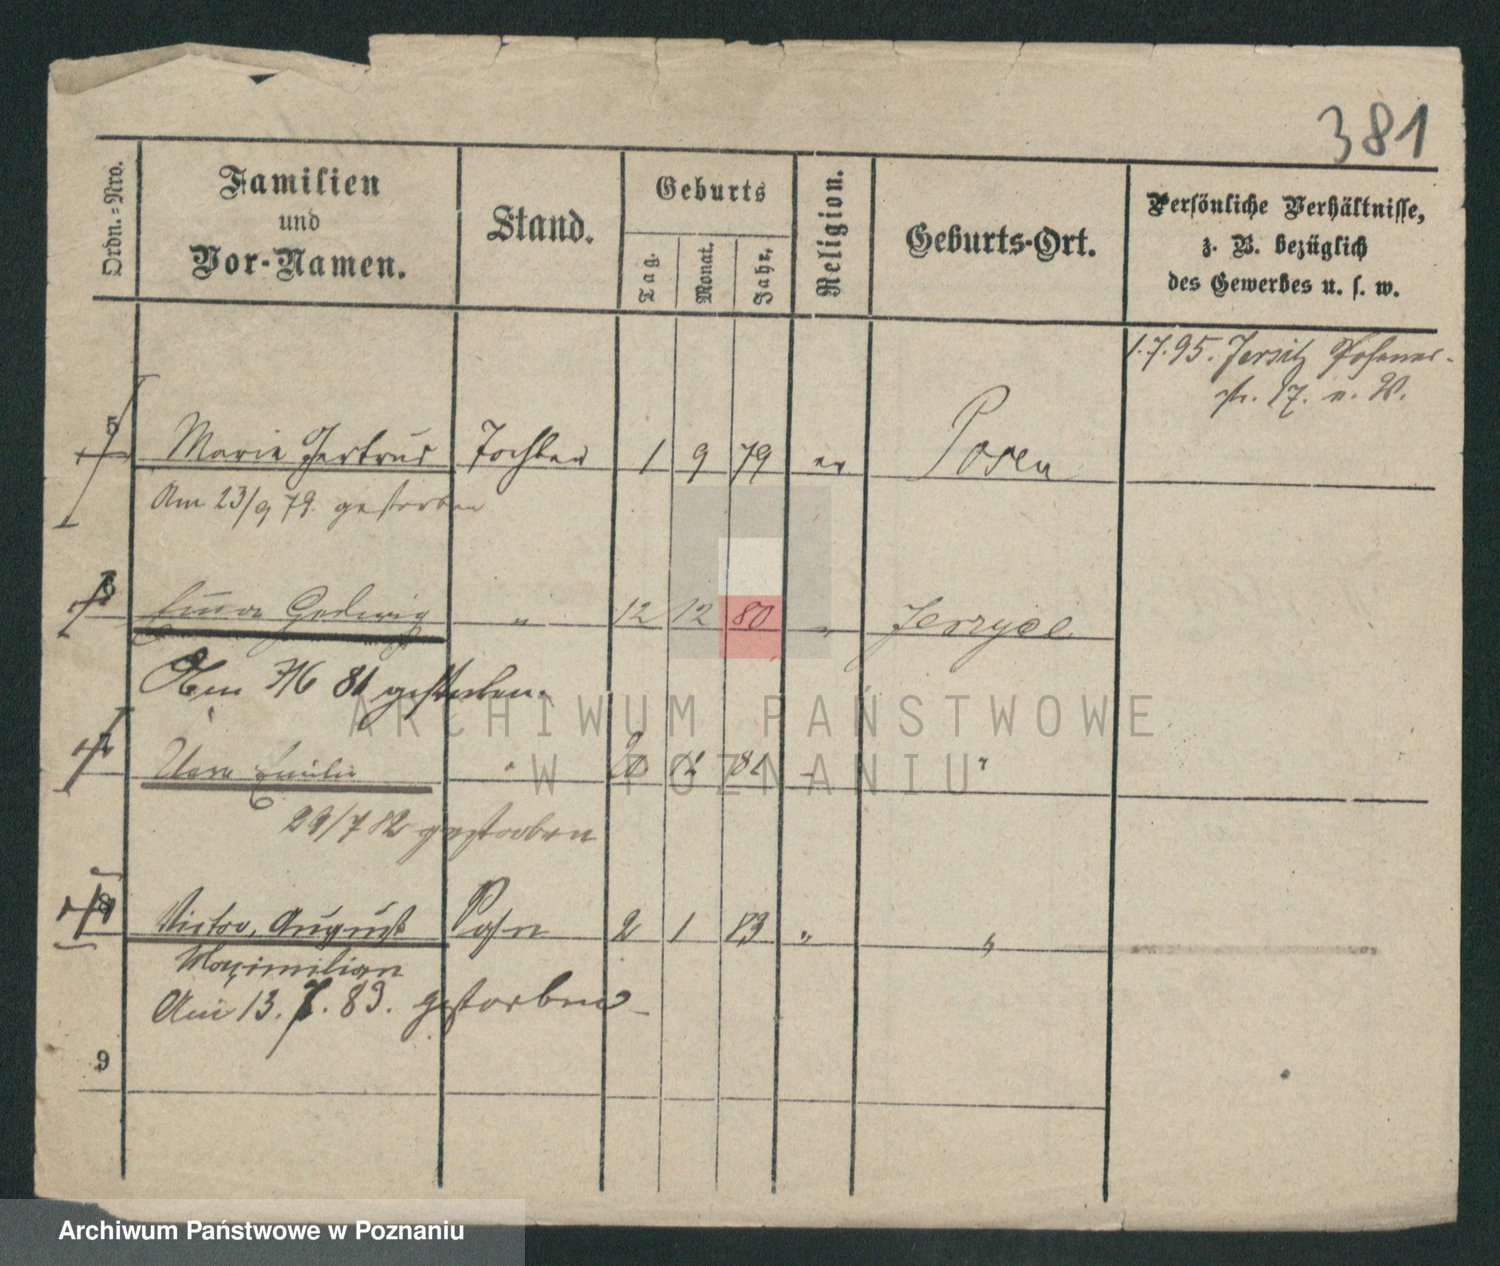 381
Ordn.-Nro.
Familien
und
Vor-Namen.
Stand.
Geburts
Tag.
Monat.
Jahr.
Religion.
Geburts-Ort.
Persönliche Verhältnisse,
z. B. bezüglich
des Gewerbes u. s. w.
1.7.95. Jersitz Posener-
str. 17. n. W.
5 Marie Gertrud Tochter 1 9 79 ev Posen
Am 23/9 79. gestorben
Hedwig " 12 12 80 " Jerzyce
Am 7/6 81 gestorben.
Emilie " 20 12 81 "
29/7 82 gestorben
8 Victor, August Sohn 2 1 83 " "
Maximilian
Am 13. 7. 83. gestorben
9
ARCHIWUM PAŃSTWOWE
W POZNANIU
Archiwum Państwowe w Poznaniu